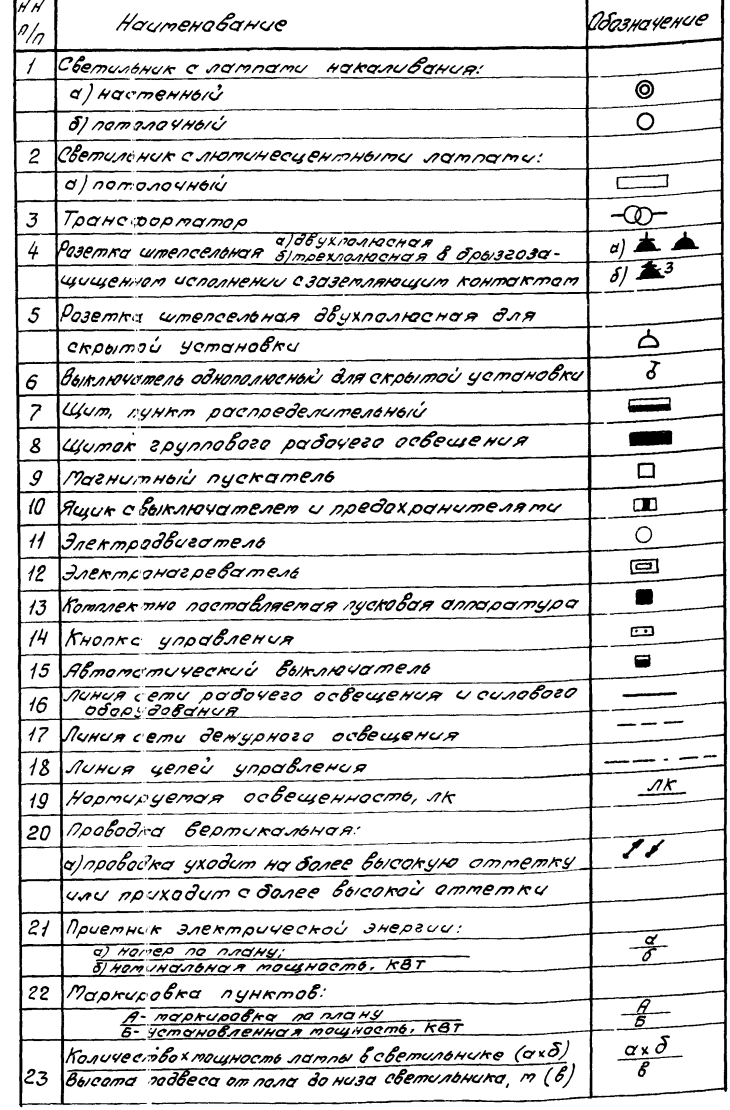 НН п/п Наименование Обозначение
1 Светильник с лампами накаливания:
а) настенный
б) потолочный
2 Светильник с люминесцентными лампами:
а) потолочный
3 Трансформатор
4 Розетка штепсельная а) двухполюсная б) трехполюсная в брызгоза- а)
щищенном исполнении с заземляющим контактом б) 3
5 Розетка штепсельная двухполюсная для
скрытой установки
6 Выключатель однополюсный для скрытой установки
7 Щит, пункт распределительный
8 Щиток группового рабочего освещения
9 Магнитный пускатель
10 Ящик с выключателем и предохранителями
11 Электродвигатель
12 Электронагреватель
13 Комплектно поставляемая пусковая аппаратура
14 Кнопка управления
15 Автоматический выключатель
16 Линия сети рабочего освещения и силового
оборудования
17 Линия сети дежурного освещения
18 Линия цепей управления
19 Нормируемая освещенность, лк лк
20 Проводка вертикальная:
а) проводка уходит на более высокую отметку
или приходит с более высокой отметки
21 Приемник электрической энергии:
а) номер по плану; а
б) номинальная мощность, кВт б
22 Маркировка пунктов:
А - маркировка по плану А
Б - установленная мощность, кВт Б
Количество х мощность лампы в светильнике (а х б) а х б
23 Высота подвеса от пола до низа светильника, м (в) в